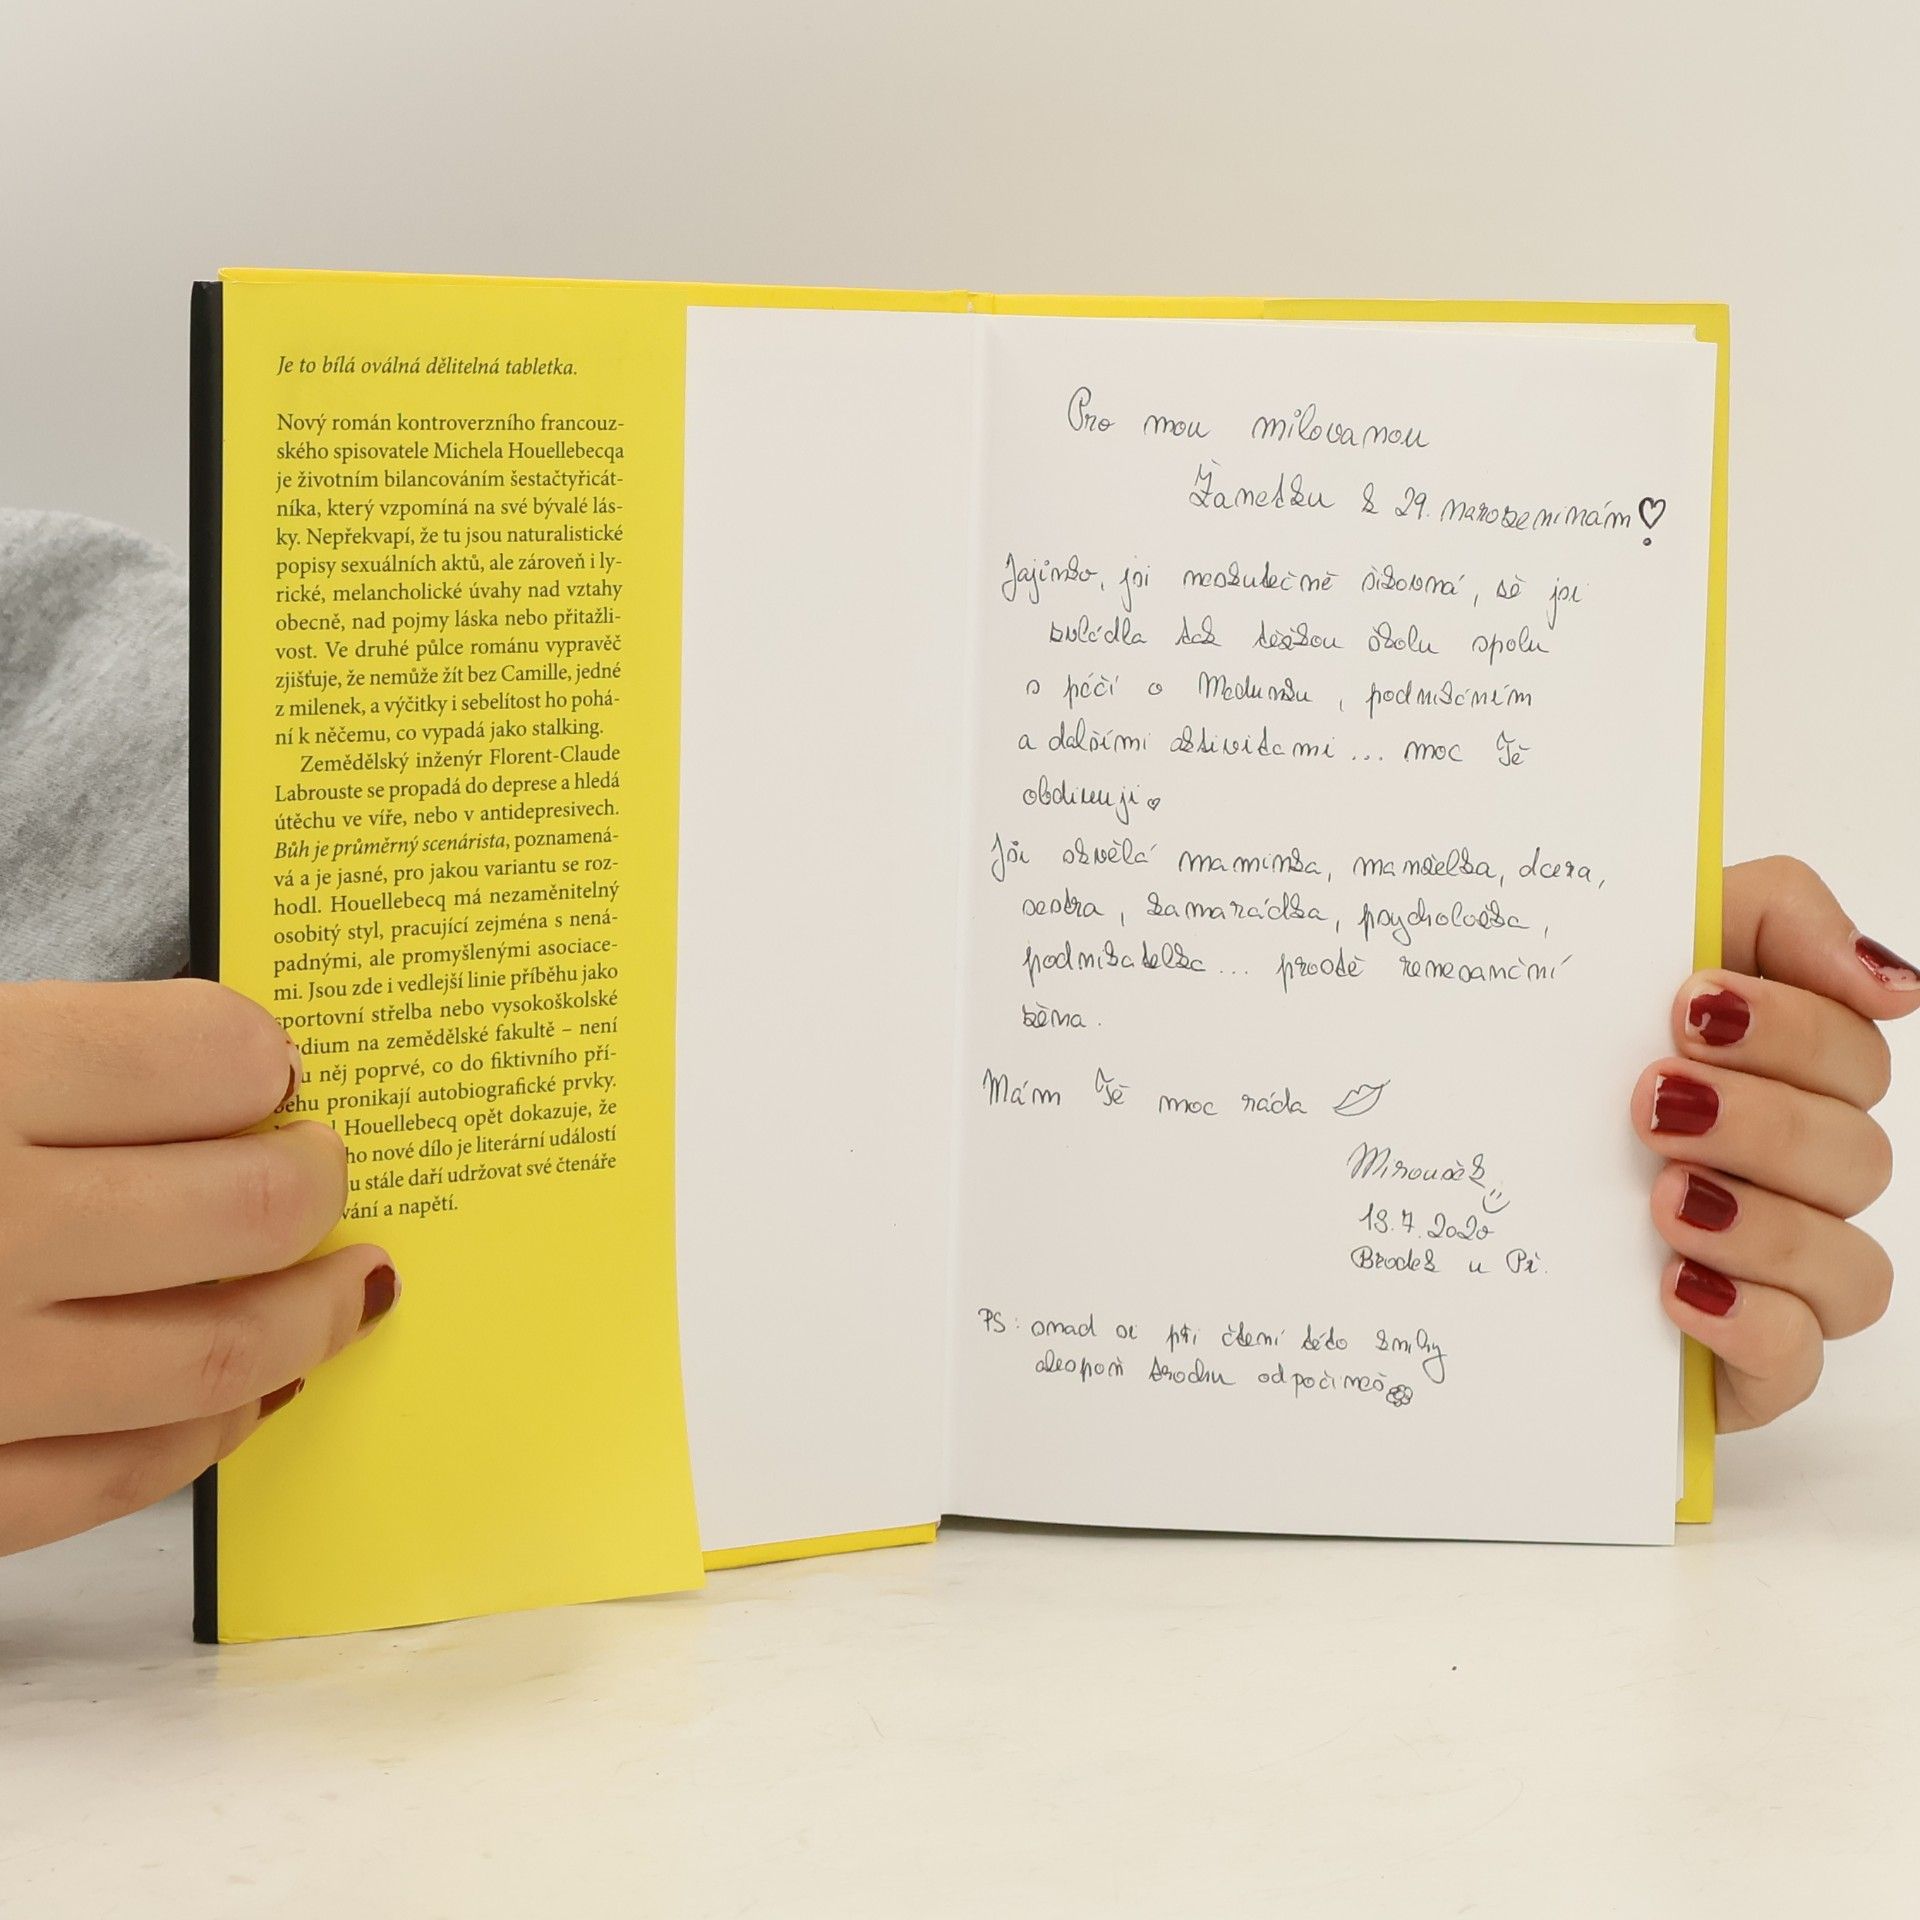 Je to bílá oválná dělitelná tabletka.
Nový román kontroverzního francouz-
ského spisovatele Michela Houellebecqa
je životním bilancováním šestačtyřicát-
níka, který vzpomíná na své bývalé lás-
ky. Nepřekvapí, že tu jsou naturalistické
popisy sexuálních aktů, ale zároveň i ly-
rické, melancholické úvahy nad vztahy
obecně, nad pojmy láska nebo přitažli-
vost. Ve druhé půlce románu vypravěč
zjišťuje, že nemůže žít bez Camille, jedné
z milenek, a výčitky i sebelítost ho pohá-
ní k něčemu, co vypadá jako stalking.
Zemědělský inženýr Florent-Claude
Labrouste se propadá do deprese a hledá
útěchu ve víře, nebo v antidepresivech.
Bůh je průměrný scenárista, poznamená-
vá a je jasné, pro jakou variantu se roz-
hodl. Houellebecq má nezaměnitelný
osobitý styl, pracující zejména s nená-
padnými, ale promyšlenými asociace-
mi. Jsou zde i vedlejší linie příběhu jako
sportovní střelba nebo vysokoškolské
dium na zemědělské fakultě – není
u něj poprvé, co do fiktivního pří-
běhu pronikají autobiografické prvky.
Houellebecq opět dokazuje, že
ho nové dílo je literární událostí
u stále daří udržovat své čtenáře
vání a napětí.
Pro mou milovanou
Žanetku k 29. narozeninám!
Jajinko, jsi neskutečně šikovná, že jsi
zvládla tak těžkou školu spolu
s péčí o Medunku, podnikáním
a dalšími aktivitami ... moc Tě
obdivuji
Jsi skvělá maminka, manželka, dcera,
sestra, kamarádka, psycholožka,
podnikatelka ... prostě renesanční
žena.
Mám Tě moc ráda
Miroušek
18.7.2020
Brodek u Př.
PS: snad si při čtení této knihy
alespoň trochu odpočineš